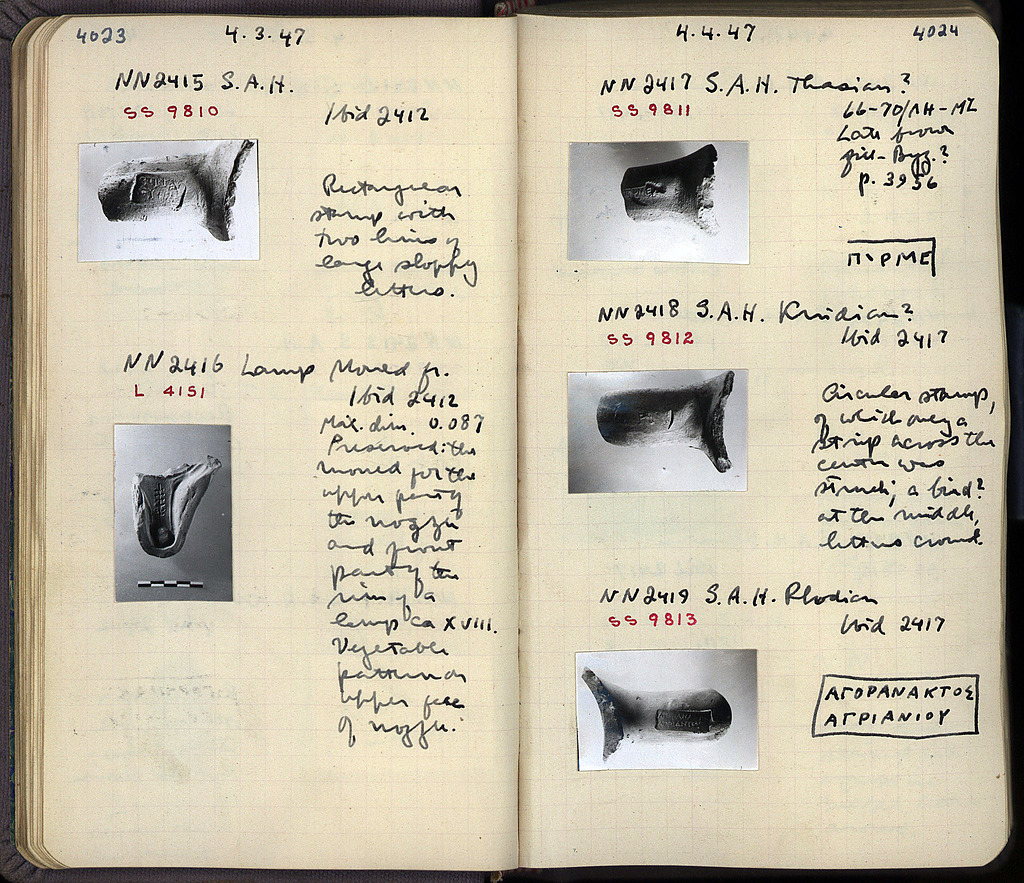 4023 4.3.47
NN2415 S.A.H.
SS 9810
Ibid 2412
Rectangular
stamp with
two lines of
large sloppy
letters.
NN2416 Lamp Mould fr.
L 4151
Ibid 2412
Max. dim. 0.087
Preserved: the
mould for the
upper part of
the nozzle
and front
part of the
rim of a
lamp ca XVIII.
Vegetable
pattern on
upper face
of nozzle.
4.4.47 4024
NN2417 S.A.H. Thasian?
SS 9811
66-70/ΛH-MZ
Late Roman
fill-Byz.?
p. 3956
ΠΥΡΜΕ
NN2418 S.A.H. Knidian?
SS 9812
Ibid 2417
Circular stamp,
of which only a
strip across the
center was
struck; a bird?
at the middle,
letters around.
NN2419 S.A.H. Rhodian
SS 9813
Ibid 2417
ΑΓΟΡΑΝΑΚΤΟΣ
ΑΓΡΙΑΝΙΟΥ